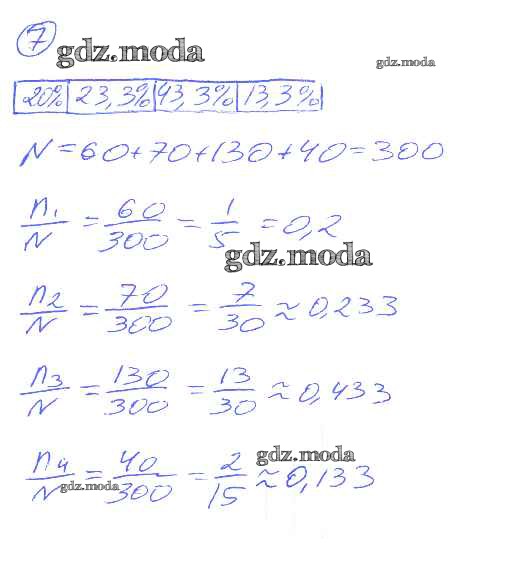 7
gdz.moda
gdz.moda
20% 23,3% 43,3% 13,3%
N=60+70+130+40=300
n₁/N = 60/300 = 1/5 = 0,2
gdz.moda
n₂/N = 70/300 = 7/30 ≈ 0,233
n₃/N = 130/300 = 13/30 ≈ 0,433
gdz.moda
n₄/N = 40/300 = 2/15 ≈ 0,133
gdz.moda